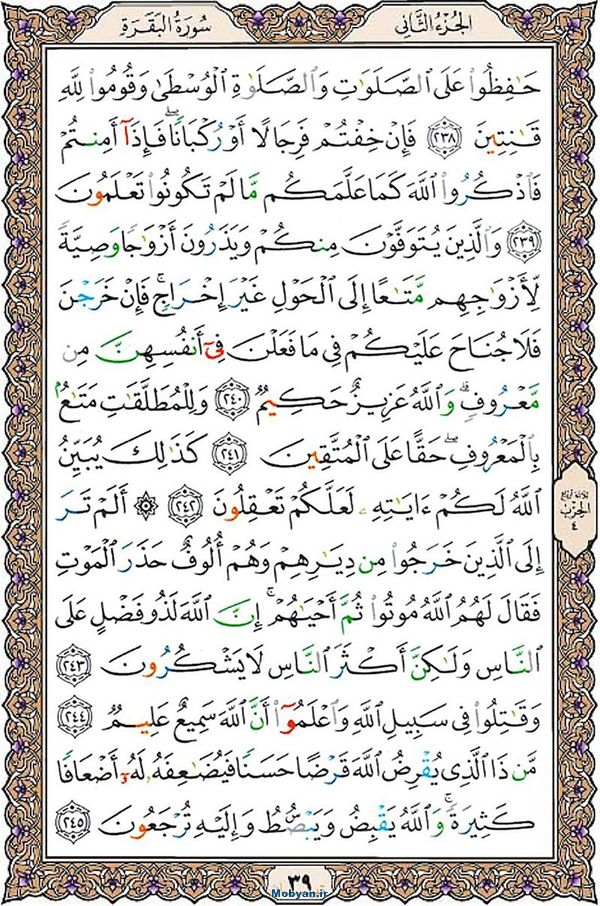 الجزء الثاني
سورة البقرة
حَـٰفِظُوا۟ عَلَى ٱلصَّلَوَٰتِ وَٱلصَّلَوٰةِ ٱلْوُسْطَىٰ وَقُومُوا۟ لِلَّهِ
قَـٰنِتِينَ ﴿٢٣٨﴾ فَإِنْ خِفْتُمْ فَرِجَالًا أَوْ رُكْبَانًا ۖ فَإِذَآ أَمِنتُمْ
فَٱذْكُرُوا۟ ٱللَّهَ كَمَا عَلَّمَكُم مَّا لَمْ تَكُونُوا۟ تَعْلَمُونَ
﴿٢٣٩﴾ وَٱلَّذِينَ يُتَوَفَّوْنَ مِنكُمْ وَيَذَرُونَ أَزْوَٰجًا وَصِيَّةً
لِّأَزْوَٰجِهِم مَّتَـٰعًا إِلَى ٱلْحَوْلِ غَيْرَ إِخْرَاجٍ ۚ فَإِنْ خَرَجْنَ
فَلَا جُنَاحَ عَلَيْكُمْ فِى مَا فَعَلْنَ فِىٓ أَنفُسِهِنَّ مِن
مَّعْرُوفٍ ۗ وَٱللَّهُ عَزِيزٌ حَكِيمٌ ﴿٢٤٠﴾ وَلِلْمُطَلَّقَـٰتِ مَتَـٰعٌۢ
بِٱلْمَعْرُوفِ ۖ حَقًّا عَلَى ٱلْمُتَّقِينَ ﴿٢٤١﴾ كَذَٰلِكَ يُبَيِّنُ
ٱللَّهُ لَكُمْ ءَايَـٰتِهِۦ لَعَلَّكُمْ تَعْقِلُونَ ﴿٢٤٢﴾ ۞ أَلَمْ تَرَ
إِلَى ٱلَّذِينَ خَرَجُوا۟ مِن دِيَـٰرِهِمْ وَهُمْ أُلُوفٌ حَذَرَ ٱلْمَوْتِ
فَقَالَ لَهُمُ ٱللَّهُ مُوتُوا۟ ثُمَّ أَحْيَـٰهُمْ ۚ إِنَّ ٱللَّهَ لَذُو فَضْلٍ عَلَى
ٱلنَّاسِ وَلَـٰكِنَّ أَكْثَرَ ٱلنَّاسِ لَا يَشْكُرُونَ ﴿٢٤٣﴾
وَقَـٰتِلُوا۟ فِى سَبِيلِ ٱللَّهِ وَٱعْلَمُوٓا۟ أَنَّ ٱللَّهَ سَمِيعٌ عَلِيمٌ ﴿٢٤٤﴾
مَّن ذَا ٱلَّذِى يُقْرِضُ ٱللَّهَ قَرْضًا حَسَنًا فَيُضَـٰعِفَهُۥ لَهُۥٓ أَضْعَافًا
كَثِيرَةً ۚ وَٱللَّهُ يَقْبِضُ وَيَبْصُۜطُ وَإِلَيْهِ تُرْجَعُونَ ﴿٢٤٥﴾
الحزب
٤
٣٩
Mobyan.ir